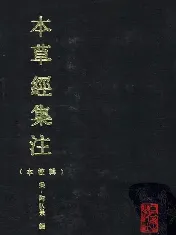 本草經集注
（輯校本）
梁·陶弘景 編